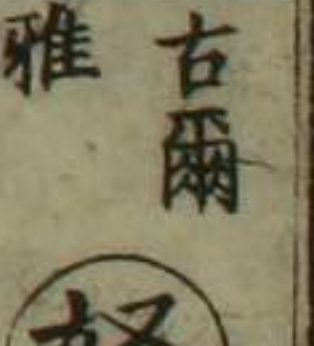 古爾
雅